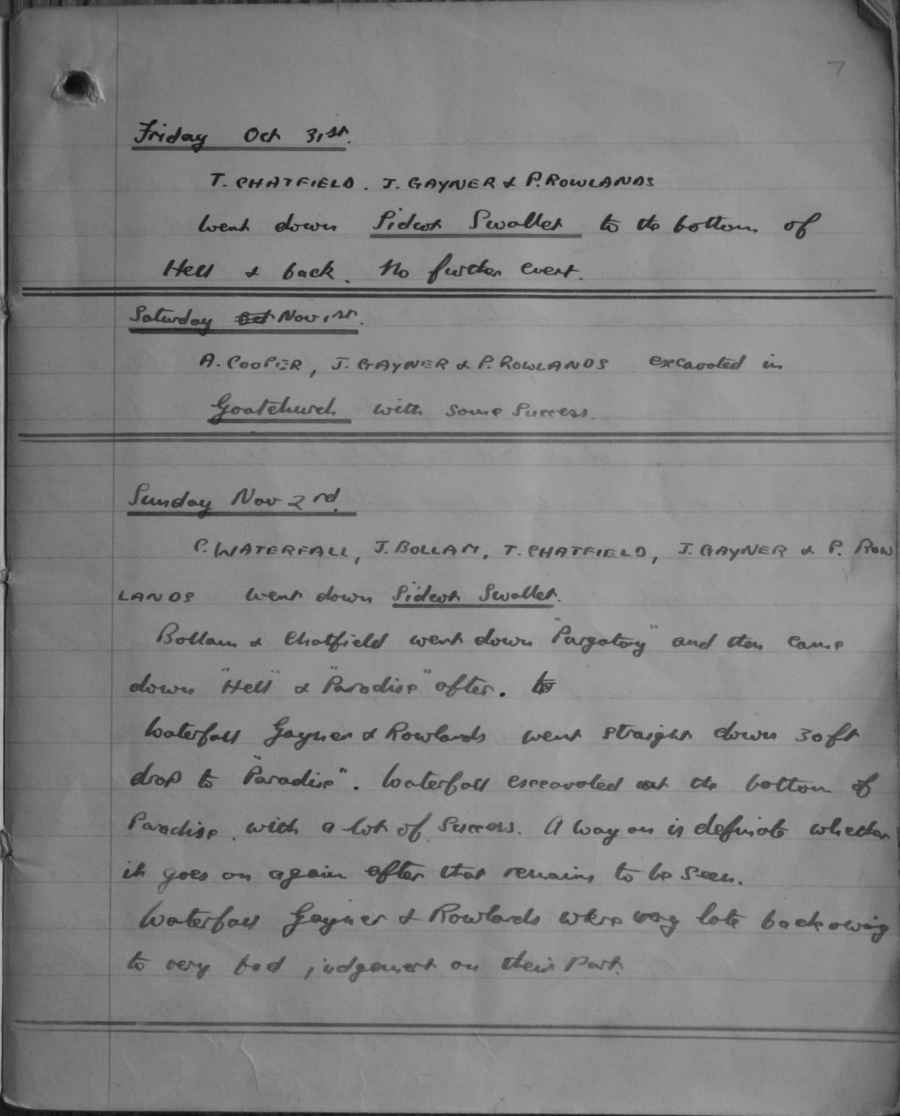 7
Friday Oct 31st.
T. CHATFIELD. J. GAYNER & P. ROWLANDS
went down Sidcot Swallet to the bottom of
Hell & back. No further event.
Saturday Oct Nov 1st.
A. COOPER, J. GAYNER & P. ROWLANDS excavated in
Goatchurch with some success.
Sunday Nov 2rd.
P. WATERFALL, J. BOLLAM, T. CHATFIELD, J. GAYNER & P. ROW
LANDS went down Sidcot Swallet.
Bollam & Chatfield went down "Purgatory" and then came
down "Hell" & "Paradise" after. to
Waterfall Gayner & Rowlands went straight down 30ft
drop to "Paradise". Waterfall excavated at the bottom of
Paradise with a lot of success. A way on is definate whether
it goes on again after that remains to be seen.
Waterfall Gayner & Rowlands where very late back owing
to very bad judgement on their part.